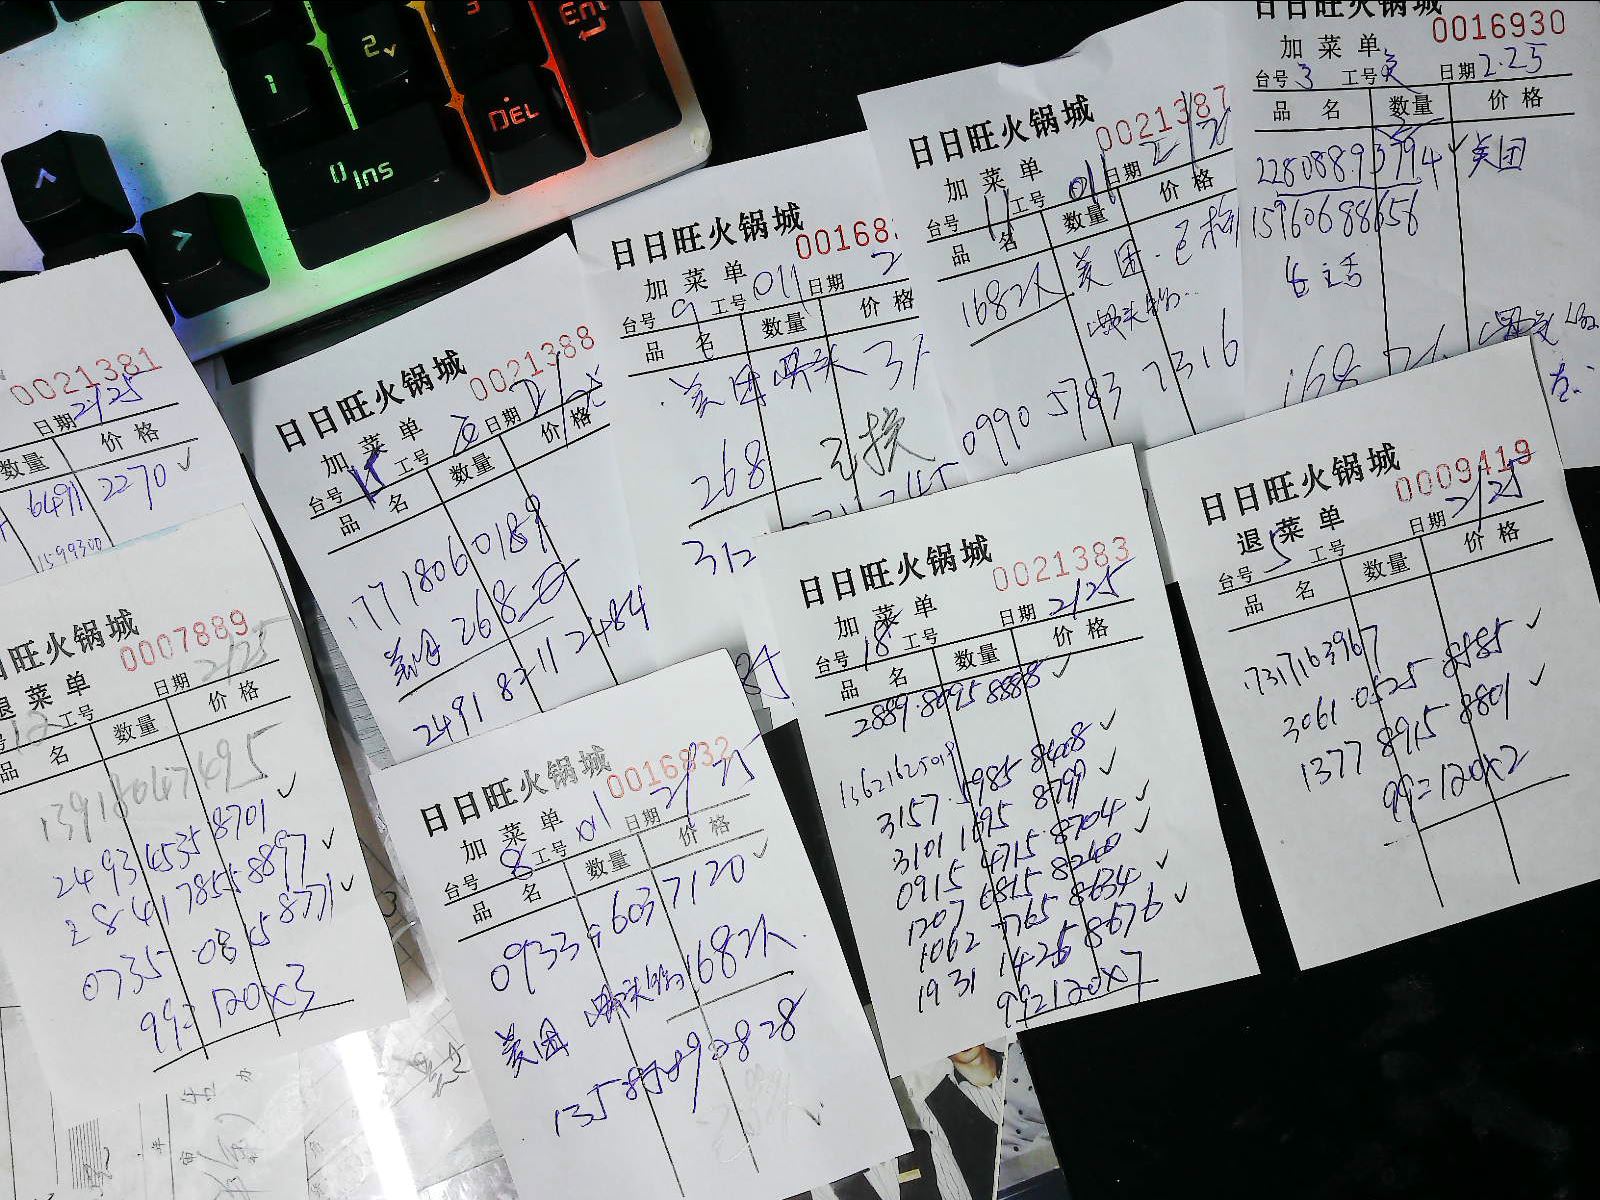 1
2
3
Ent
0 Ins
DEL
0021381
日期 2/25
数量 价格
6491 2270
1599300
日日旺火锅城
0021388
加菜单
台号 工号 日期
品名 数量 价格
17718060189
美团 268
2491 8211 2484
日日旺火锅城
00168
加菜单
台号 9 工号 011 日期 2
品名 数量 价格
美团
268 已换
312
日日旺火锅城
0021387
加菜单
台号 11 工号 011 日期
品名 数量 价格
1682人 美团.已
0990 5783 7316
日日旺火锅城
0016930
加菜单
台号 3 工号 日期 2.25
品名 数量 价格
美团
15960688656
日旺火锅城
0007889
退菜单
工号 日期 2/25
品名 数量 价格
13918047495
2493 4535 8701
2841 7855 8897
0735 0815 8771
99=120×3
日日旺火锅城
0016932
加菜单
台号 8 工号 011 日期 2/25
品名 数量 价格
0933 9603 7120
美团 1682人
日日旺火锅城
0021383
加菜单
台号 18 工号 日期 2/25
品名 数量 价格
2889.8095 8888
13621625019
3157.5985 8428
3101 1695 8799
0915 4715.8704
1207 6815 8240
1062 7765 8634
1931 1425 8676
99=120×7
日日旺火锅城
0009419
退菜单
台号 5 工号 日期 2/25
品名 数量 价格
17317163967
3061 0525 8485
1377 8915 8801
99=120×2